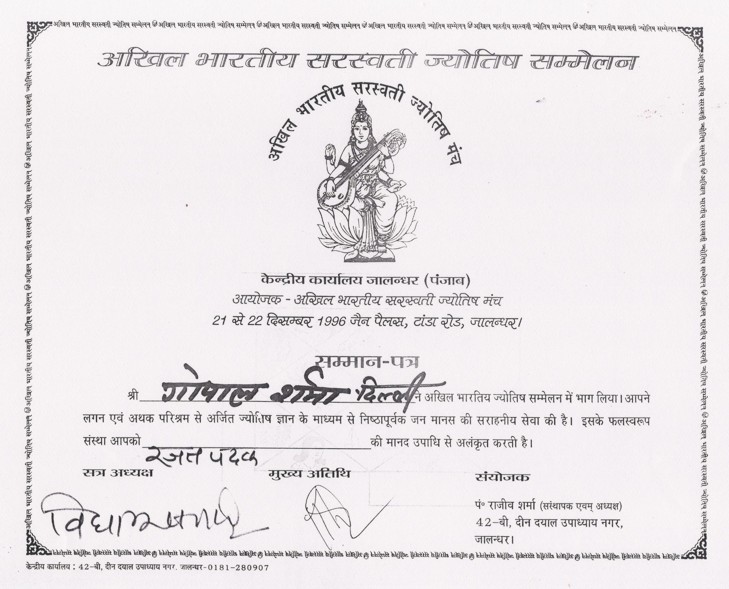 अखिल भारतीय सरस्वती ज्योतिष सम्मेलन
अखिल भारतीय सरस्वती ज्योतिष मंच
केन्द्रीय कार्यालय जालन्धर (पंजाब)
आयोजक - अखिल भारतीय सरस्वती ज्योतिष मंच
21 से 22 दिसम्बर 1996 जैन पैलस, टांडा रोड, जालन्धर।
सम्मान-पत्र
श्री गोपाल शर्मा दिल्ली ने अखिल भारतिय ज्योतिष सम्मेलन में भाग लिया। आपने
लगन एवं अथक परिश्रम से अर्जित ज्योतिष ज्ञान के माध्यम से निष्ठापूर्वक जन मानस की सराहनीय सेवा की है। इसके फलस्वरूप
संस्था आपको रजत पदक की मानद उपाधि से अलंकृत करती है।
सत्र अध्यक्ष मुख्य अतिथि संयोजक
पं॰ राजीव शर्मा (संस्थापक एवम् अध्यक्ष)
42-बी, दीन दयाल उपाध्याय नगर,
जालन्धर।
केन्द्रीय कार्यालय : 42-बी, दीन दयाल उपाध्याय नगर, जालन्धर-0181-280907